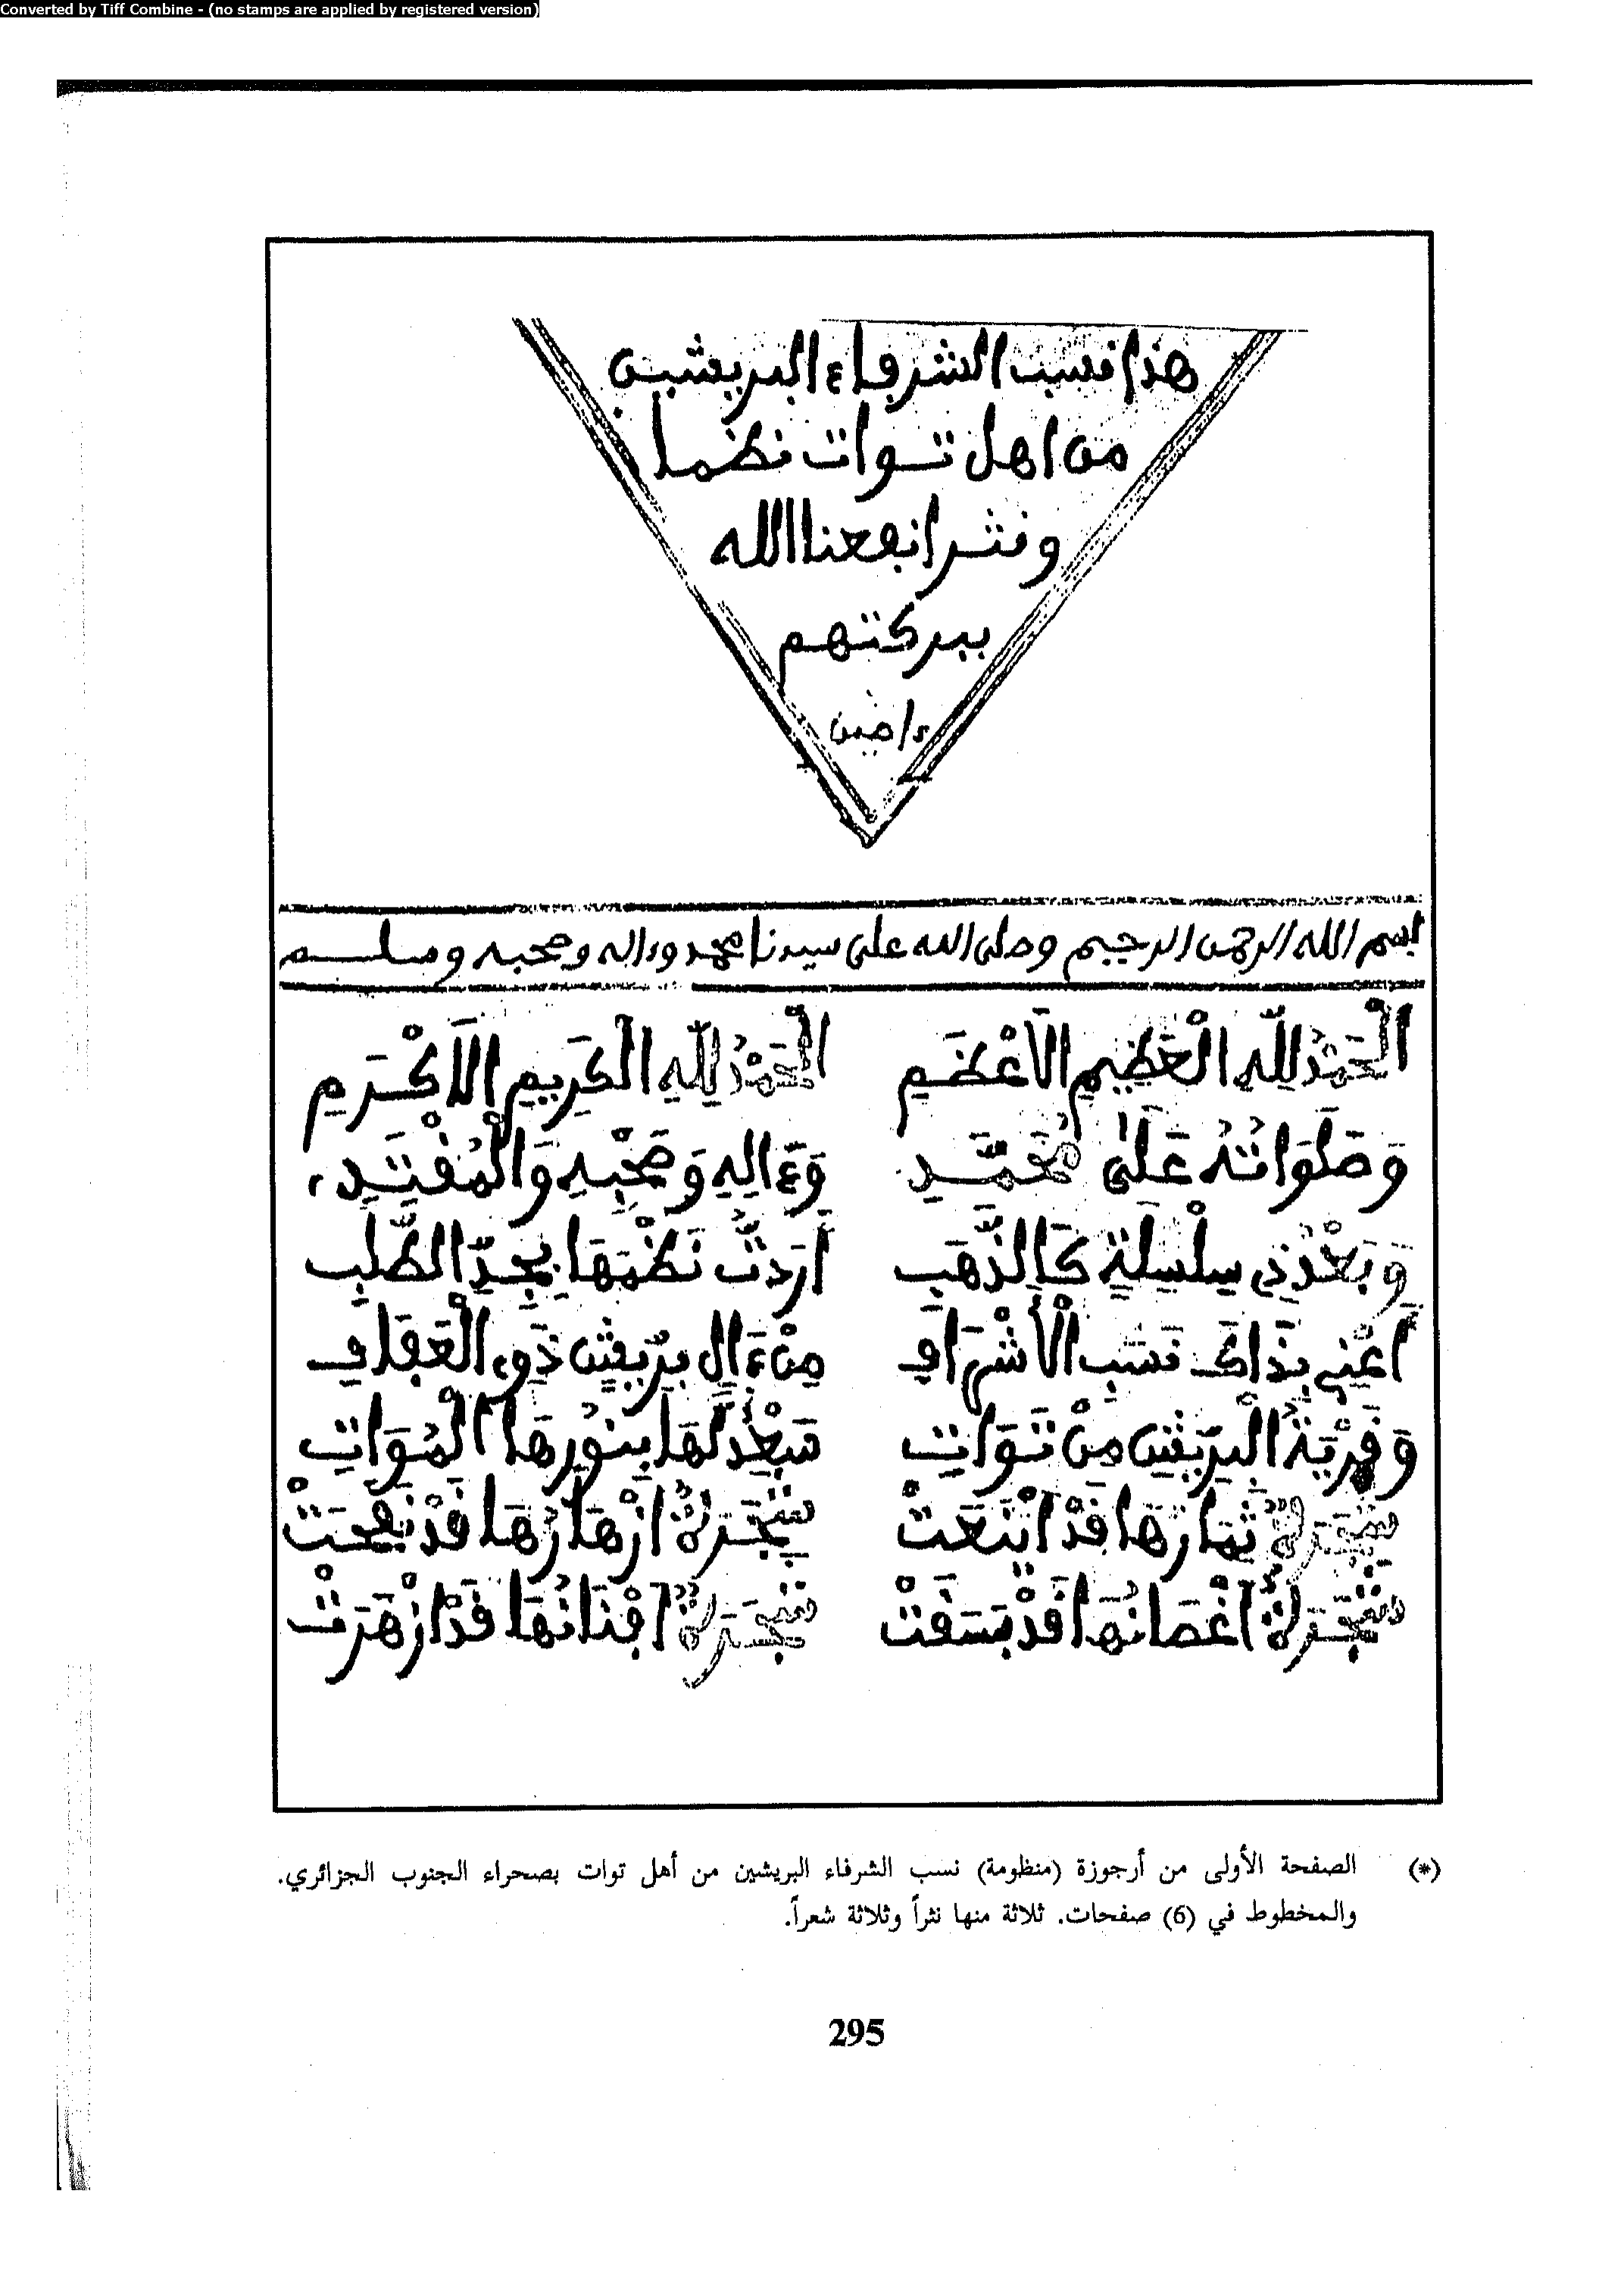 Converted by Tiff Combine - (no stamps are applied by registered version)
هذا نسب الشرفاء البريشيين
من اهل تــوات نظمـا
ونثـرا نفعنا الله
ببركتهم
ءامين
بسم الله الرحمن الرحيم وصلى الله على سيدنا محمد وءاله وصحبه وسلـــم
الْحَمْدُ لِلَّهِ الْعَظِيمِ الْأَعْظَـمِ الْحَمْدُ لِلَّهِ الْكَرِيمِ الْأَكْـرَمِ
وَصَلَوَاتُهُ عَلَىٰ مُحَمَّـدِ وَءَالِهِ وَصَحْبِهِ وَالْمُقْتَـدِ
وَبَعْدُ ذِي سِلْسِلَةٌ كَالذَّهَبِ أَرَدتُّ نَظْمَهَا بِجِدِّ الطَّلَبِ
أَعْنِي بِذَاكَ نَسَبَ الْأَشْرَافِ مِنْ ءَالِ بِرِّيشٍ ذَوِي الْعَفَافِ
وَقَرْيَةُ الْبِرِّيشِ مِنْ تَوَاتِ سَعْدٌ لَهَا بِنُورِهَا الْمُوَاتِ
شَجَرَةٌ ثِمَارُهَا قَدْ أَيْنَعَتْ شَجَرَةٌ أَزْهَارُهَا قَدْ نَفَحَتْ
شَجَرَةٌ أَغْصَانُهَا قَدْ بَسَقَتْ شَجَرَةٌ أَفْنَانُهَا قَدْ أَزْهَرَتْ
(*) الصفحة الأولى من أرجوزة (منظومة) نسب الشرفاء البريشين من أهل توات بصحراء الجنوب الجزائري.
والمخطوط في (6) صفحات. ثلاثة منها نثراً وثلاثة شعراً.
295